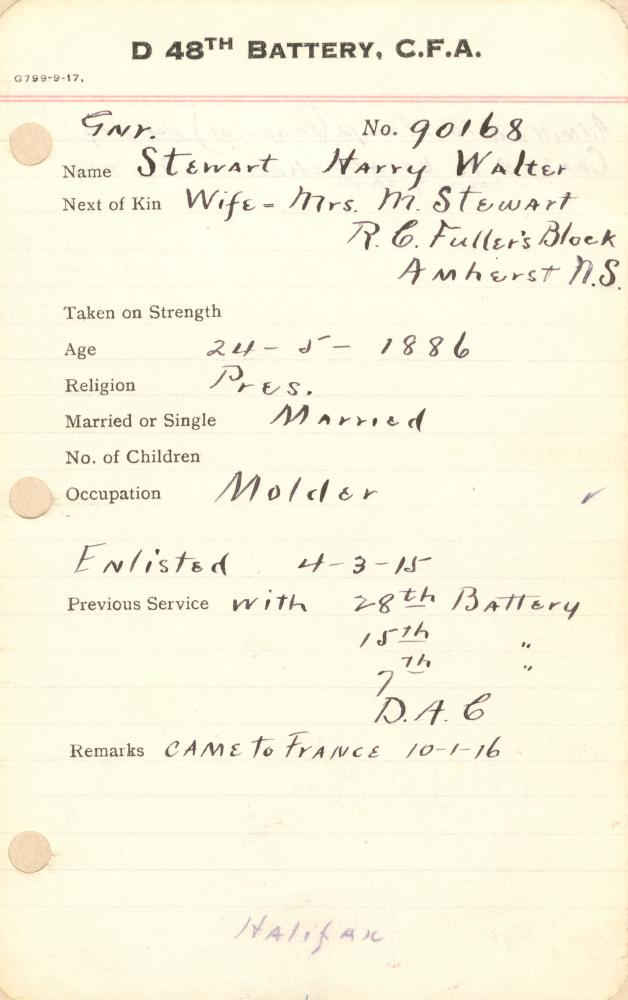 D 48TH BATTERY, C.F.A.
G799-9-17.
Gnr. No. 90168
Name Stewart Harry Walter
Next of Kin Wife - Mrs. M. Stewart
R. C. Fuller's Block
Amherst N.S.
Taken on Strength
Age 24 - 5 - 1886
Religion Pres.
Married or Single Married
No. of Children
Occupation Molder
Enlisted 4-3-15
Previous Service with 28th Battery
15th "
7th "
D.A.C
Remarks CAME To FRANCE 10-1-16
Halifax